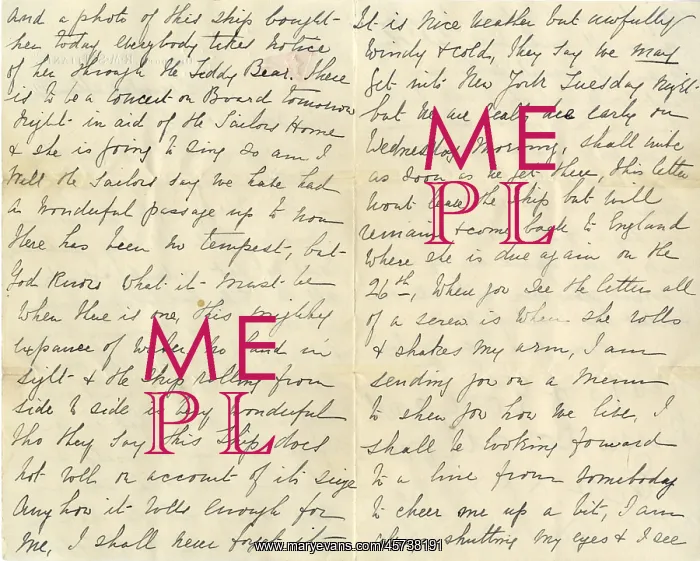 and a photo of this ship bought
her today everybody takes notice
of her through the Teddy Bear. There
is to be a concert on Board tomorrow
night in aid of the Sailors Home
& she is going to sing so am I
Well the Sailors say we have had
a wonderful passage up to now
there has been no tempest, but
God knows what it must be
when there is one, this mighty
expance of water no land in
sight & the ship rolling from
side to side is very wonderful
tho they say this ship does
not roll on account of its size
Any how it rolls enough for
me, I shall never forget it
It is nice weather but awfully
windy & cold, they say we may
get into New York Tuesday night
but we are really due early on
Wednesday Morning, shall write
as soon as we get there, this letter
wont leave the ship but will
remain & come back to England
where she is due again on the
26th, When you see the letter all
of a screw is when she rolls
& shakes my arm, I am
sending you on a menu
to shew you how we live, I
shall be looking forward
to a line from somebody
to cheer me up a bit, I am
shutting my eyes & I see
ME
PL
ME
PL
www.maryevans.com/45738191